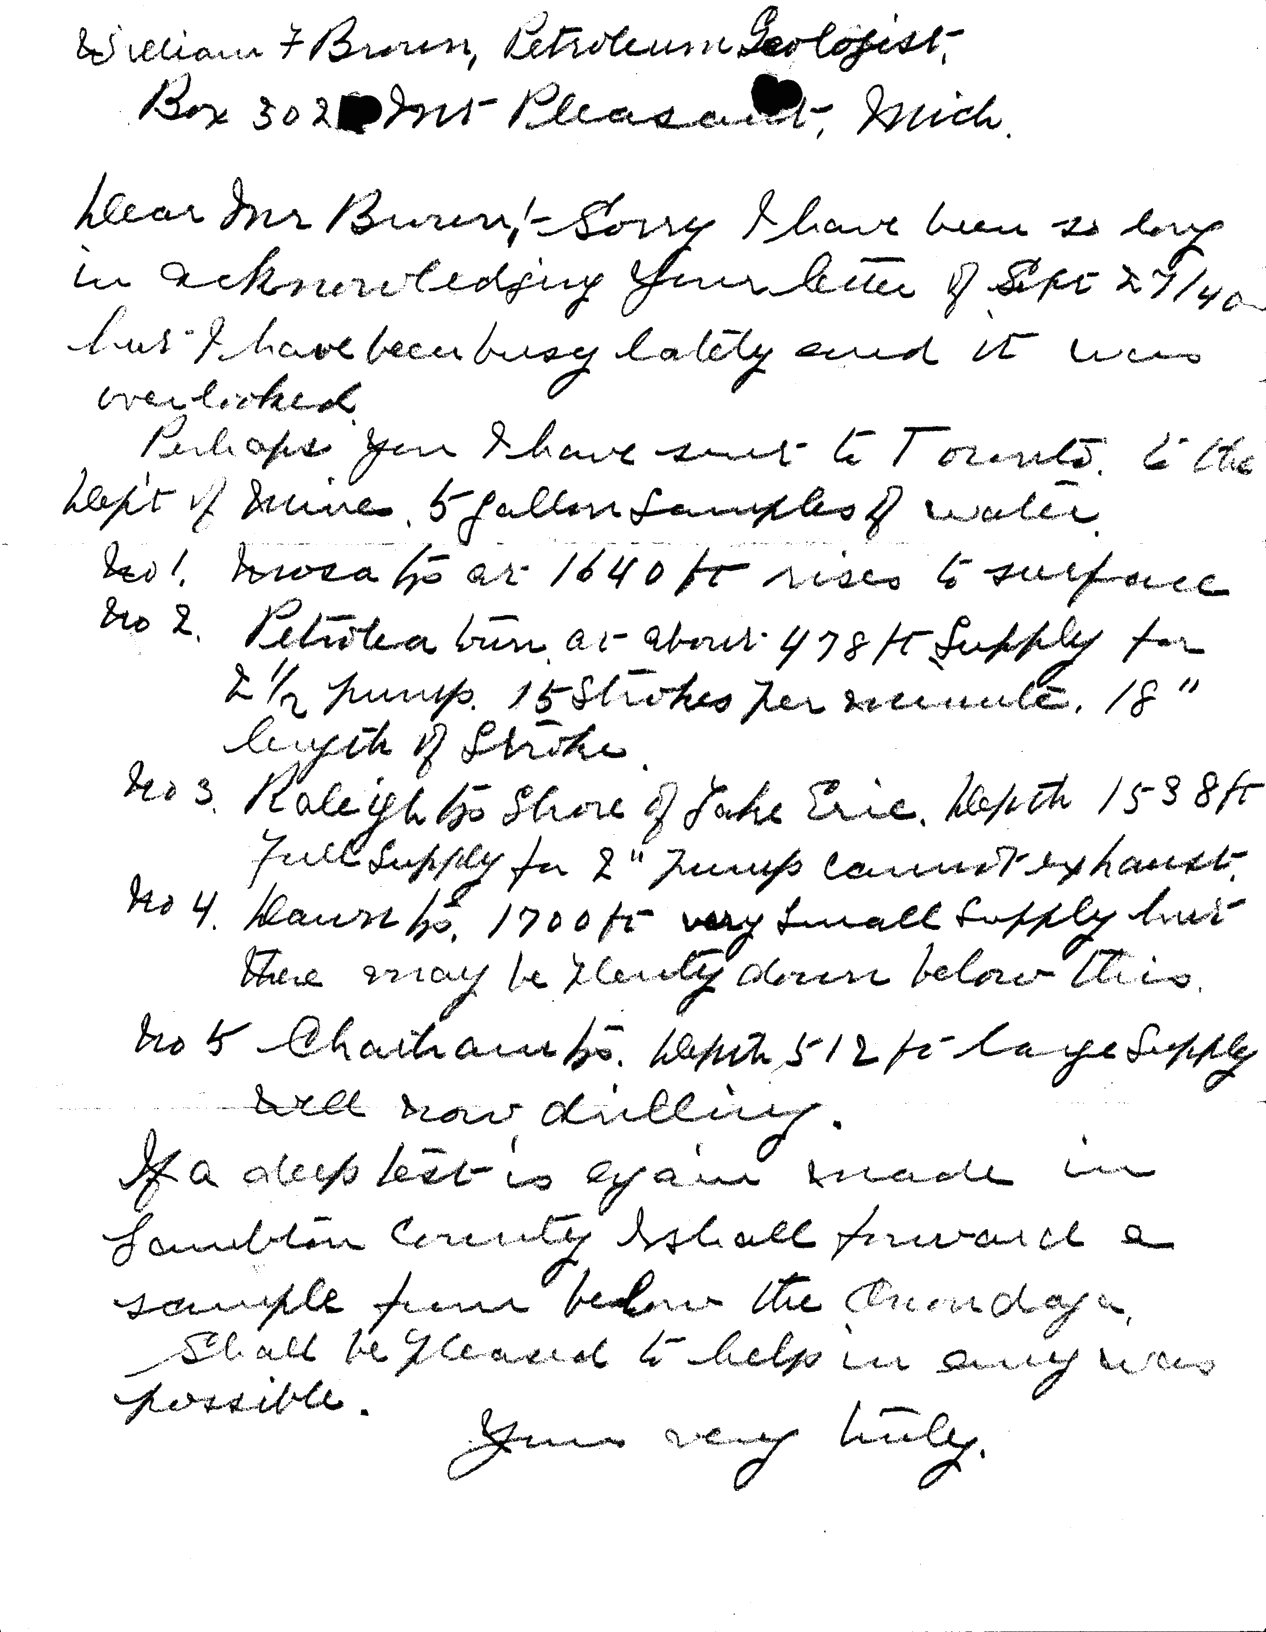 William F Brown, Petroleum Geologist,
Box 302 Mt Pleasant, Mich.
Dear Mr Brown,!- Sorry I have been so long
in acknowledging your letter of Sept 27/40
but I have been busy lately and it was
overlooked.
Perhaps you I have sent to Toronto. to the
Dep't of Mines. 5 gallon samples of water.
No 1. Mosa tp at 1640 ft rises to surface
No 2. Petrolea at about 478 ft Supply for
2 1/2 pump. 15 Strokes per minute. 18"
length of Stroke.
No 3. Raleigh tp Shore of Lake Erie. Depth 1538 ft
Full Supply for 2" pump cannot exhaust.
No 4. Dawn tp. 1700 ft very small supply but
there may be plenty down below this.
No 5 Chatham tp. Depth 512 ft large Supply
Well now drilling.
If a deep test is again made in
Lambton County I shall forward a
sample from below the Onondaga.
Shall be pleased to help in any was
possible.
Yours very truly.